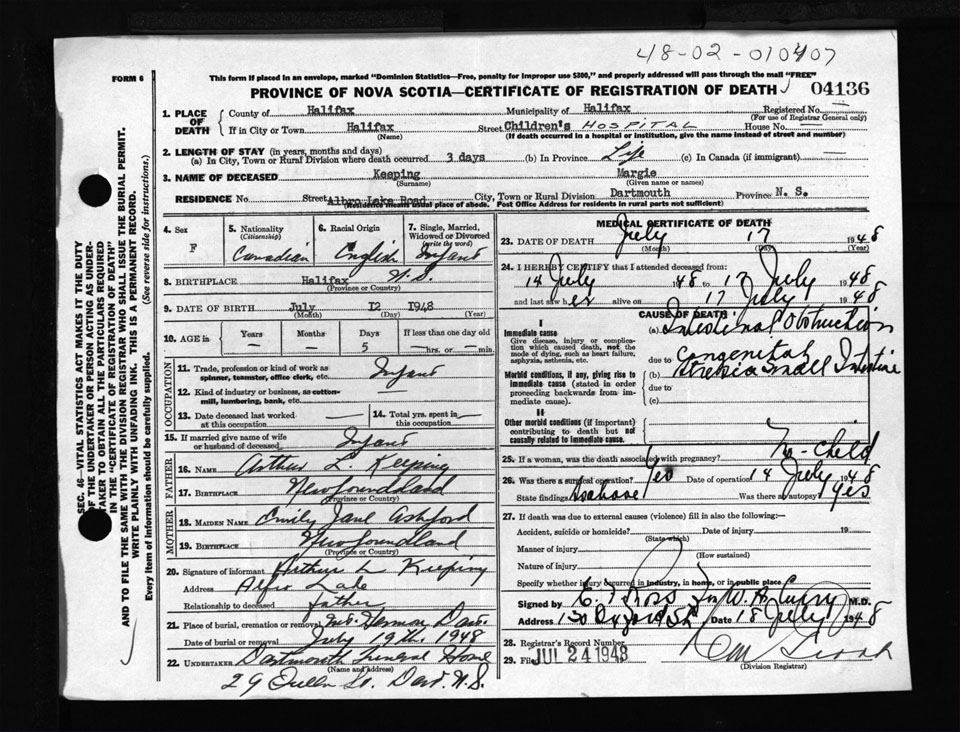 48-02-010407
FORM 6
This form if placed in an envelope, marked "Dominion Statistics—Free, penalty for improper use $300," and properly addressed will pass through the mail "FREE"
PROVINCE OF NOVA SCOTIA—CERTIFICATE OF REGISTRATION OF DEATH
04136
1. PLACE OF DEATH
County of Halifax Municipality of Halifax Registered No. —
(For use of Registrar General only)
If in City or Town Halifax Street Children's HOSPITAL House No. —
(Name) (If death occurred in a hospital or institution, give the name instead of street and number)
2. LENGTH OF STAY (in years, months and days)
(a) In City, Town or Rural Division where death occurred 3 days (b) In Province Life (c) In Canada (if immigrant) —
3. NAME OF DECEASED Keeping Margie
(Surname) (Given name or names)
RESIDENCE No. Street Albro Lake Road City, Town or Rural Division Dartmouth Province N. S.
(Residence means usual place of abode. Post Office Address for residents in rural parts not sufficient)
4. Sex F
5. Nationality (Citizenship) Canadian
6. Racial Origin English
7. Single, Married, Widowed or Divorced (write the word) Infant
8. BIRTHPLACE Halifax N.S.
(Province or Country)
9. DATE OF BIRTH July 12 1948
(Month) (Day) (Year)
10. AGE in Years Months Days If less than one day old
— — 5 —hrs. or —min.
OCCUPATION
11. Trade, profession or kind of work as spinner, teamster, office clerk, etc. Infant
12. Kind of industry or business, as cotton-mill, lumbering, bank, etc. —
13. Date deceased last worked at this occupation —
14. Total yrs. spent in this occupation —
15. If married give name of wife or husband of deceased Infant
FATHER
16. NAME Arthur L. Keeping
17. BIRTHPLACE Newfoundland
(Province or Country)
MOTHER
18. MAIDEN NAME Emily Jane Ashford
19. BIRTHPLACE Newfoundland
(Province or Country)
20. Signature of informant Arthur L Keeping
Address Albro Lake
Relationship to deceased father
21. Place of burial, cremation or removal Mt. Hermon Dart.
Date of burial or removal July 19th. 1948
22. UNDERTAKER Dartmouth Funeral Home
(Name and address)
29 Queen St. Dart. N.S.
MEDICAL CERTIFICATE OF DEATH
23. DATE OF DEATH July 17 1948
(Month) (Day)
24. I HEREBY CERTIFY that I attended deceased from:
14 July 1948 to 17 July 1948
and last saw her alive on 17 July 1948
CAUSE OF DEATH
I
Immediate cause (a) Intestinal Obstruction
Give disease, injury or complication which caused death, not the mode of dying, such as heart failure, asphyxia, asthenia, etc.
due to Congenital
Morbid conditions, if any, giving rise to immediate cause (stated in order proceeding backwards from immediate cause).
(b) Atresia Small Intestine
due to
(c)
II
Other morbid conditions (if important) contributing to death but not causally related to immediate cause.
25. If a woman, was the death associated with pregnancy? No - Child
26. Was there a surgical operation? Yes Date of operation 14 July 1948
State findings As above Was there autopsy? Yes
27. If death was due to external causes (violence) fill in also the following:—
Accident, suicide or homicide? Date of injury 19
(State which)
Manner of injury
(How sustained)
Nature of injury
Specify whether injury occurred in industry, in home, or in public place
Signed by E. F. Ross for W. A. Curry M.D.
Address Date 18 July 1948
28. Registrar's Record Number
29. Filed JUL 24 1948
(Division Registrar)
SEC. 46—VITAL STATISTICS ACT MAKES IT THE DUTY
OF THE UNDERTAKER OR PERSON ACTING AS UNDERTAKER TO OBTAIN ALL THE PARTICULARS REQUIRED
IN THE "CERTIFICATE OF REGISTRATION OF DEATH"
AND TO FILE THE SAME WITH THE DIVISION REGISTRAR WHO SHALL ISSUE THE BURIAL PERMIT.
WRITE PLAINLY WITH UNFADING INK. THIS IS A PERMANENT RECORD.
Every item of information should be carefully supplied. (See reverse side for instructions.)